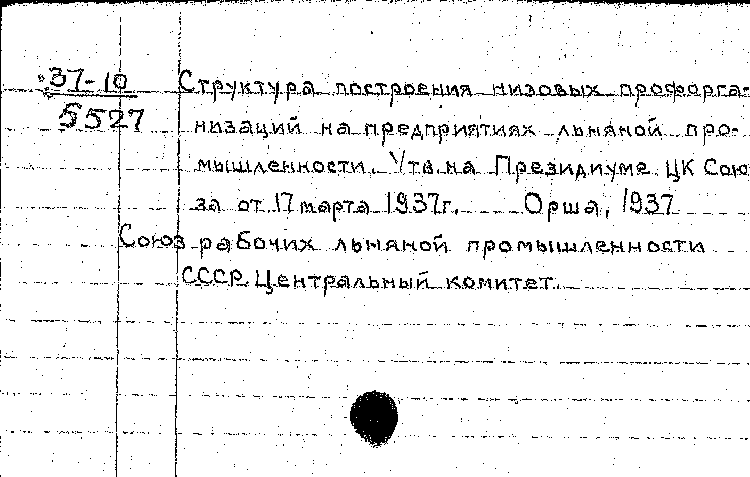 37-10
5527
Структура построения низовых профорга-
низаций на предприятиях льняной про-
мышленности. Утв. на Президиуме ЦК Сою
за от 17 марта 1937г. Орша, 1937
Союз рабочих льняной промышленности
СССР. Центральный комитет.